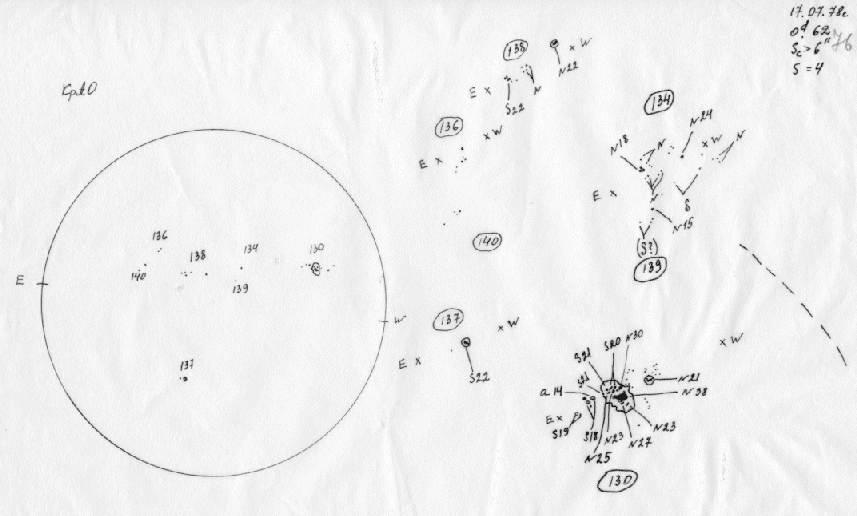 17.07.78г.
0ᵈ 62
Sc > 6"
S = 4
76
КрАО
138
× W
N22
E ×
S22
N
136
× W
E ×
134
N24
N18
N
× W
N
E ×
N
S
N15
(S?)
139
140
136
138
134
130
140
139
137
E
W
137
× W
E ×
S22
× W
S21
S20
N30
S21
N21
a 14
N38
E ×
S19
S18
N23
N27
N23
N25
130